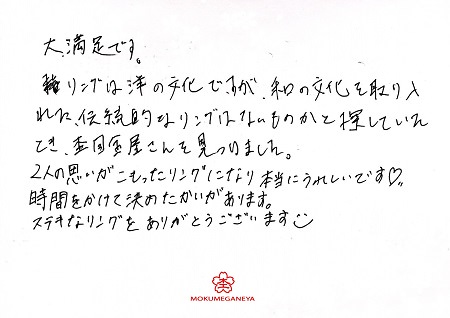 大満足です。
リングは洋の文化ですが、和の文化を取り入
れた、伝統的なリングはないものかと探していた
とき、杢目金屋さんを見つけました。
2人の思いがこもったリングになり本当にうれしいです♡
時間をかけて決めたかいがあります。
ステキなリングをありがとうございます
MOKUMEGANEYA